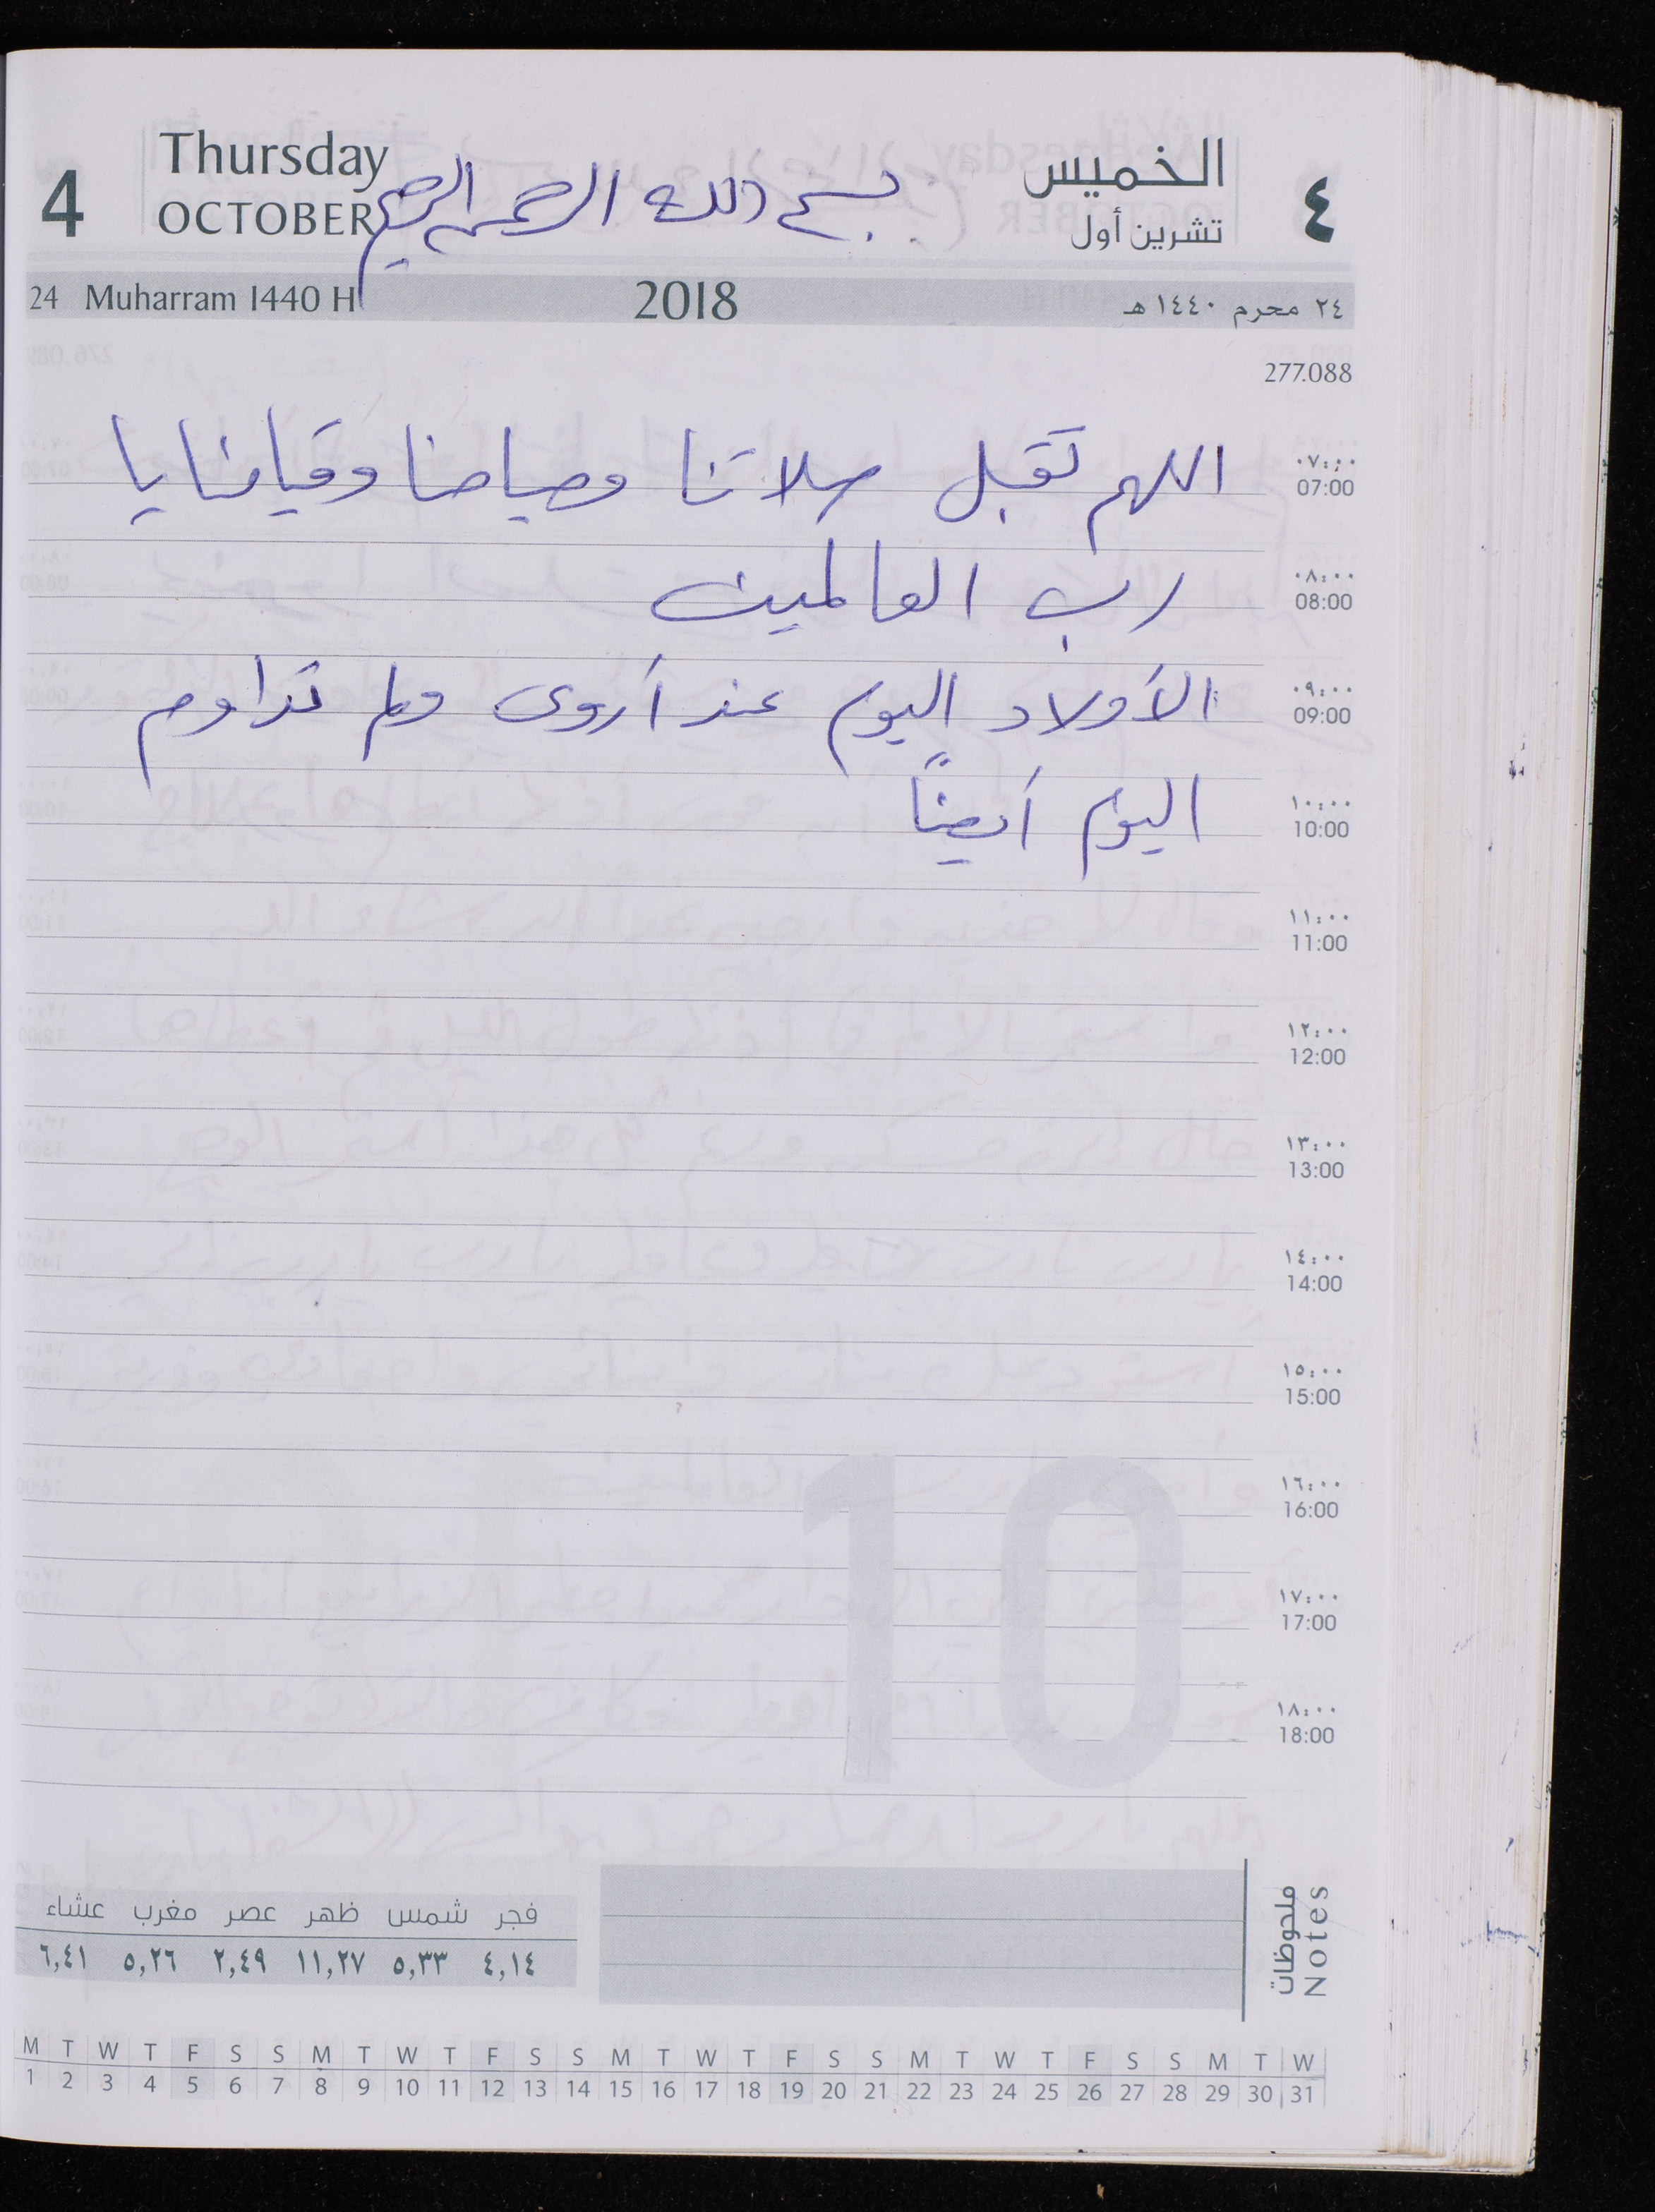 4 Thursday OCTOBER بسم الله الرحمن الرحيم الخميس تشرين أول ٤
24 Muharram 1440 H 2018 ٢٤ محرم ١٤٤٠ هـ
277.088
اللهم تقبل صلاتنا وصيامنا وقيامنا يا
٠٧:٠٠
07:00
رب العالمين
٠٨:٠٠
08:00
الأولاد اليوم عند أروى ولم تداوم
٠٩:٠٠
09:00
اليوم أيضاً
١٠:٠٠
10:00
١١:٠٠
11:00
١٢:٠٠
12:00
١٣:٠٠
13:00
١٤:٠٠
14:00
١٥:٠٠
15:00
١٦:٠٠
16:00
10
١٧:٠٠
17:00
١٨:٠٠
18:00
ملحوظات
Notes
فجر شمس ظهر عصر مغرب عشاء
٤,١٤ ٥,٣٣ ١١,٢٧ ٢,٤٩ ٥,٢٦ ٦,٤١
M T W T F S S M T W T F S S M T W T F S S M T W T F S S M T W
1 2 3 4 5 6 7 8 9 10 11 12 13 14 15 16 17 18 19 20 21 22 23 24 25 26 27 28 29 30 31